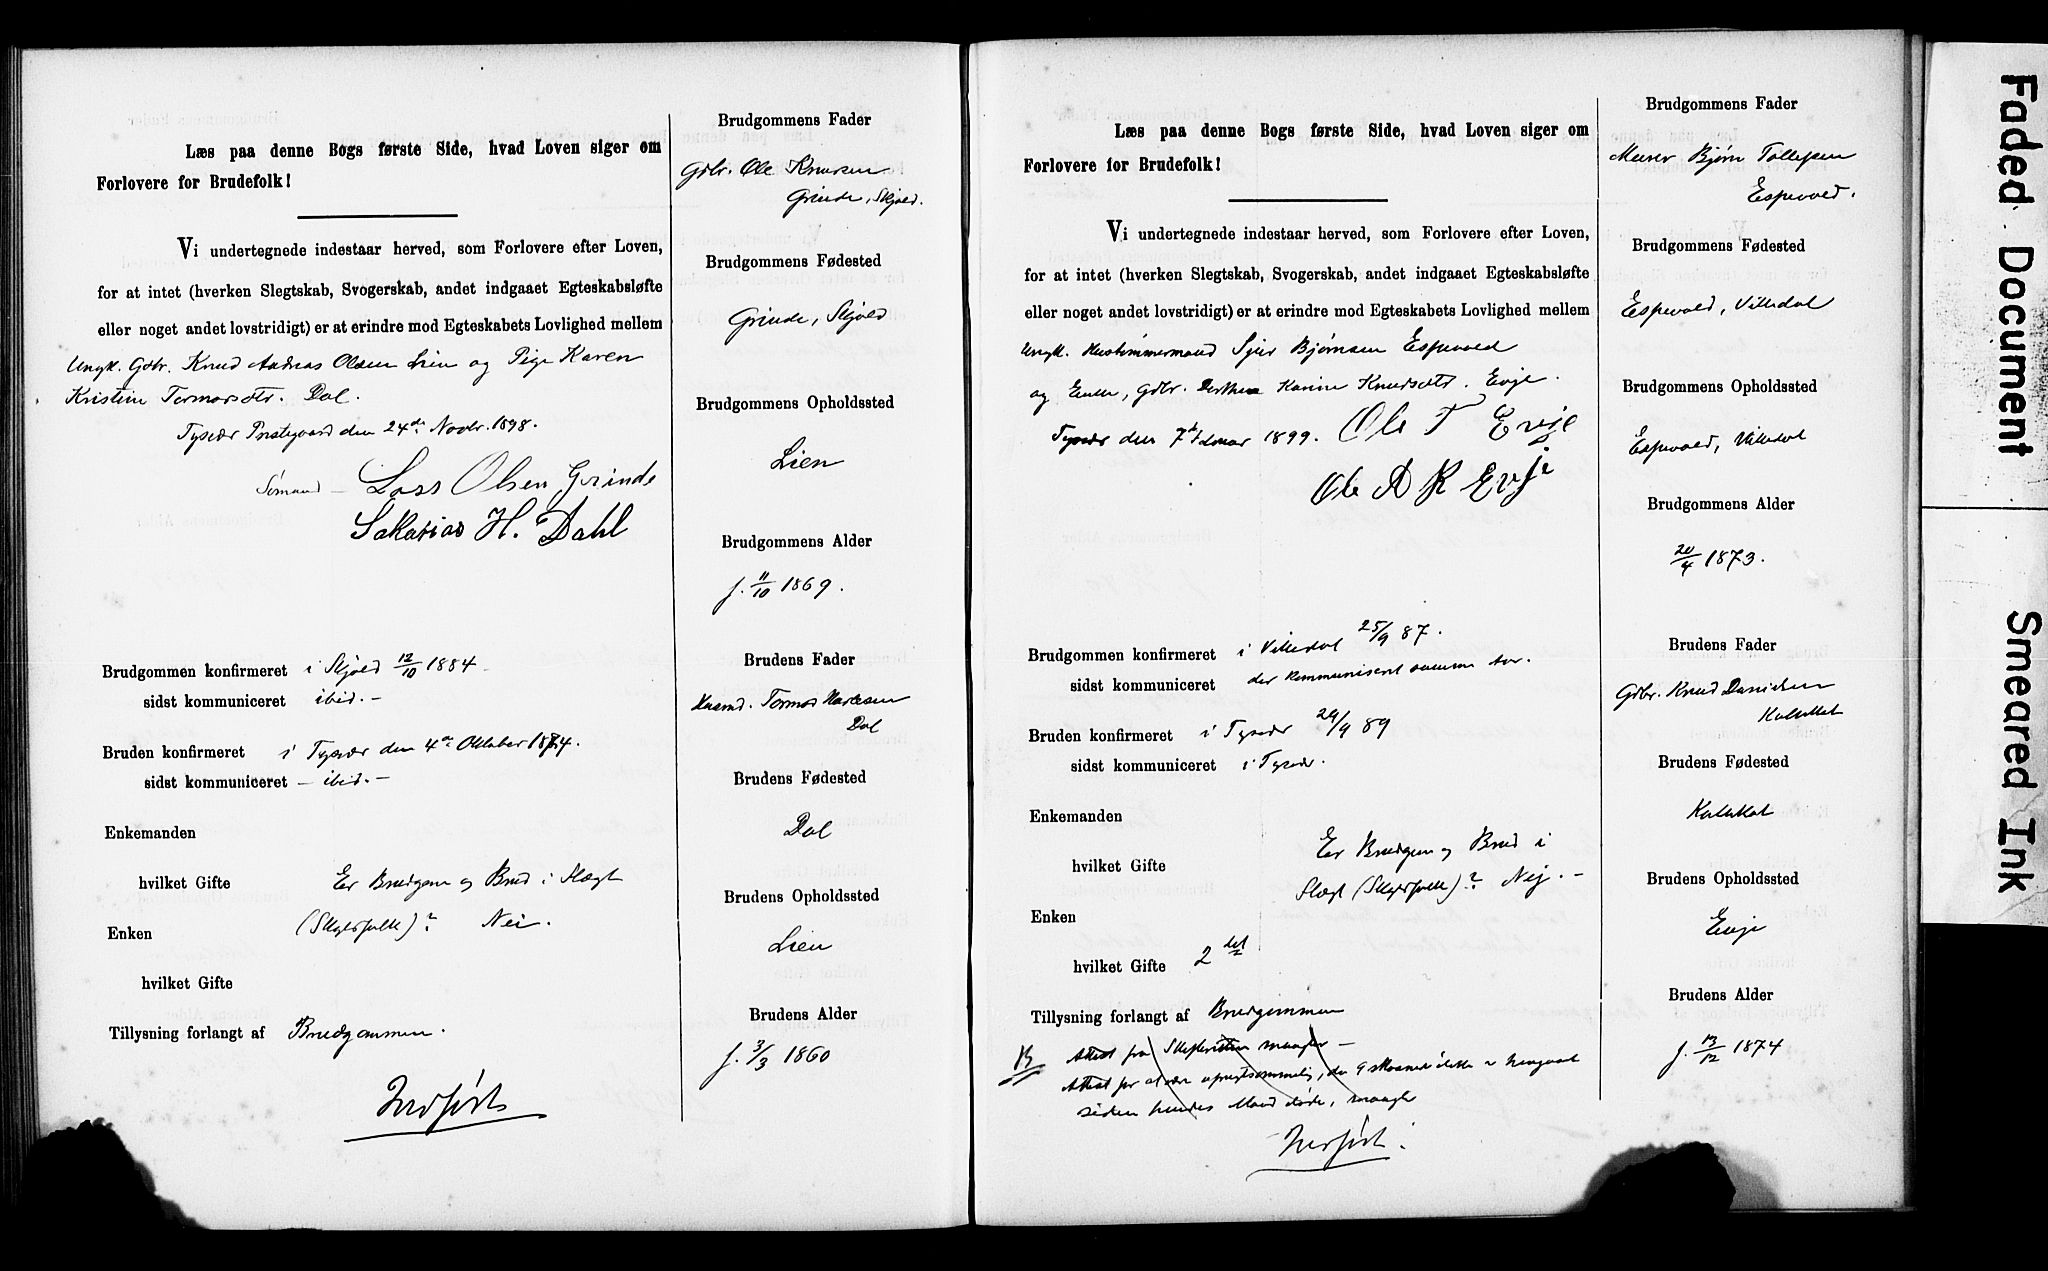 Læs paa denne Bogs første Side, hvad Loven siger om
Forlovere for Brudefolk!
Vi undertegnede indestaar herved, som Forlovere efter Loven,
for at intet (hverken Slegtskab, Svogerskab, andet indgaaet Egteskabsløfte
eller noget andet lovstridigt) er at erindre mod Egteskabets Lovlighed mellem
Ungk. Gdbr. Knud Andreas Olsen Lien og Pige Karen
Kristine Tormodsdtr. Dal.
Tysvær Prestegaard den 24de Novbr. 1898.
Sømand – Lars Olsen Grinde
Sakarias H. Dahl
Brudgommen konfirmeret i Skjold 12/10 1884
sidst kommuniceret ibid. –
Bruden konfirmeret i Tysvær den 4de Oktober 1874.
sidst kommuniceret – ibid. –
Enkemanden
hvilket Gifte Er Brudgom og Brud i Slægt
(Skyldfolk)? Nei.
Enken
hvilket Gifte
Tillysning forlangt af Brudgommen.
Indført
Brudgommens Fader
Gdbr. Ole Knudsen
Grinde, Skjold.
Brudgommens Fødested
Grinde, Skjold
Brudgommens Opholdssted
Lien
Brudgommens Alder
f. 11/10 1869.
Brudens Fader
Husmd. Tormod
Dal
Brudens Fødested
Dal
Brudens Opholdssted
Lien
Brudens Alder
f. 3/3 1860
Læs paa denne Bogs første Side, hvad Loven siger om
Forlovere for Brudefolk!
Vi undertegnede indestaar herved, som Forlovere efter Loven,
for at intet (hverken Slegtskab, Svogerskab, andet indgaaet Egteskabsløfte
eller noget andet lovstridigt) er at erindre mod Egteskabets Lovlighed mellem
Ungk. Hustømmermand Sjur Bjørnsen Espevold
og Enke, Gdbr. Berthe Karine Knudsdtr. Evje.
Tysvær den 7de 1899. Ole T Evje
Ole A K Evje
Brudgommen konfirmeret i Vikedal 25/9 87.
sidst kommuniceret der kommuniseret samme Aar.
Bruden konfirmeret i Tysvær 29/9 89
sidst kommuniceret i Tysvær.
Enkemanden
hvilket Gifte Er Brudgom og Brud i
Slægt (Skyldfolk)? Nej. –
Enken
hvilket Gifte 2det
Tillysning forlangt af Brudgommen
Attest fra Skifteretten mangler –
Attest for at være, da 9 Maaneder ikke er hengaaet
siden hendes Mand døde, mangler
Indført.
Brudgommens Fader
Murer Bjørn Tollefsen
Espevold.
Brudgommens Fødested
Espevold, Vikedal
Brudgommens Opholdssted
Espevold, Vikedal
Brudgommens Alder
20/4 1873.
Brudens Fader
Gdbr. Knud Danielsen
Brudens Fødested
Brudens Opholdssted
Evje
Brudens Alder
f. 13/12 1874
Faded Document
Smeared Ink